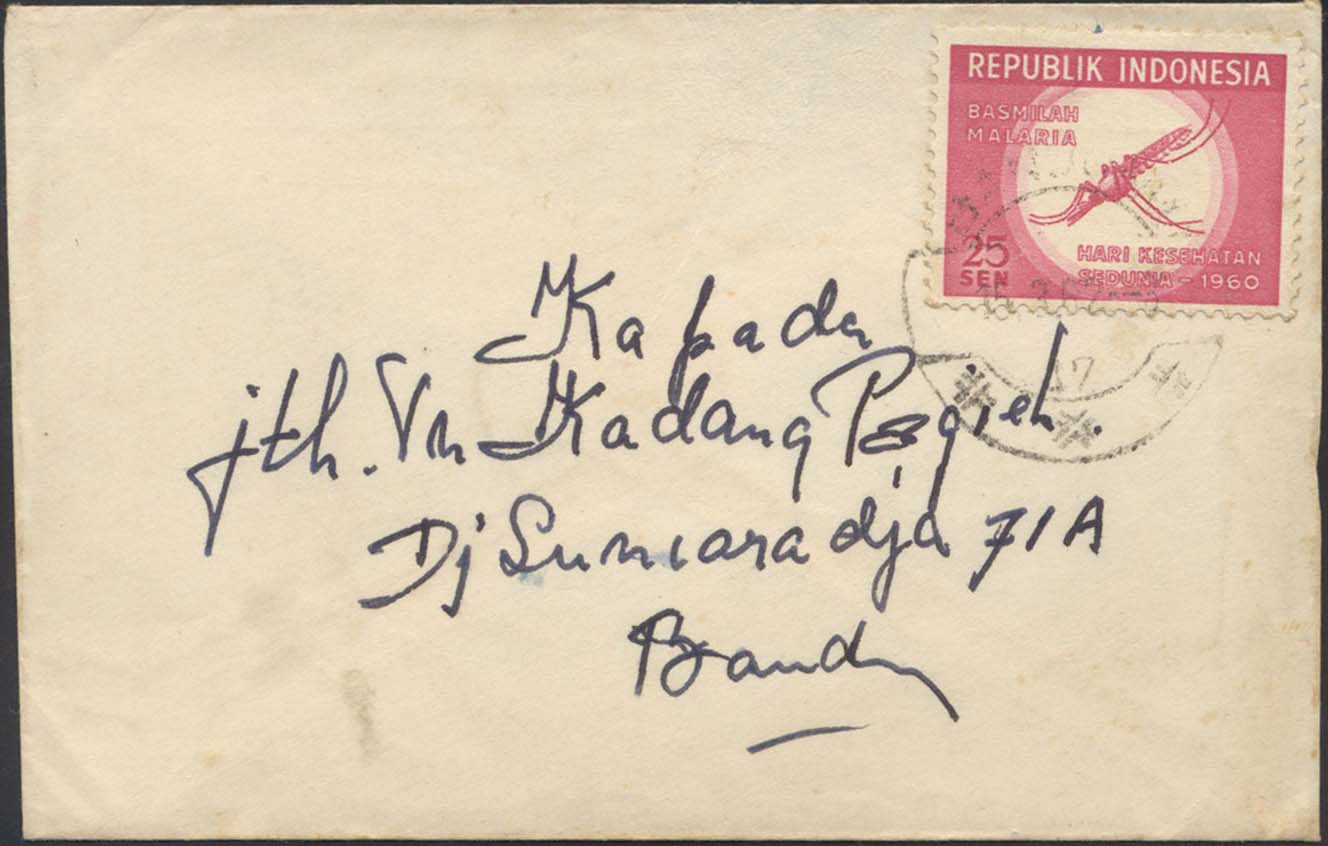 REPUBLIK INDONESIA
BASMILAH
MALARIA
25
SEN
HARI KESEHATAN
SEDUNIA - 1960
Kapada
jth. Tn Kadang
Dj Suniaradja 71A
Band